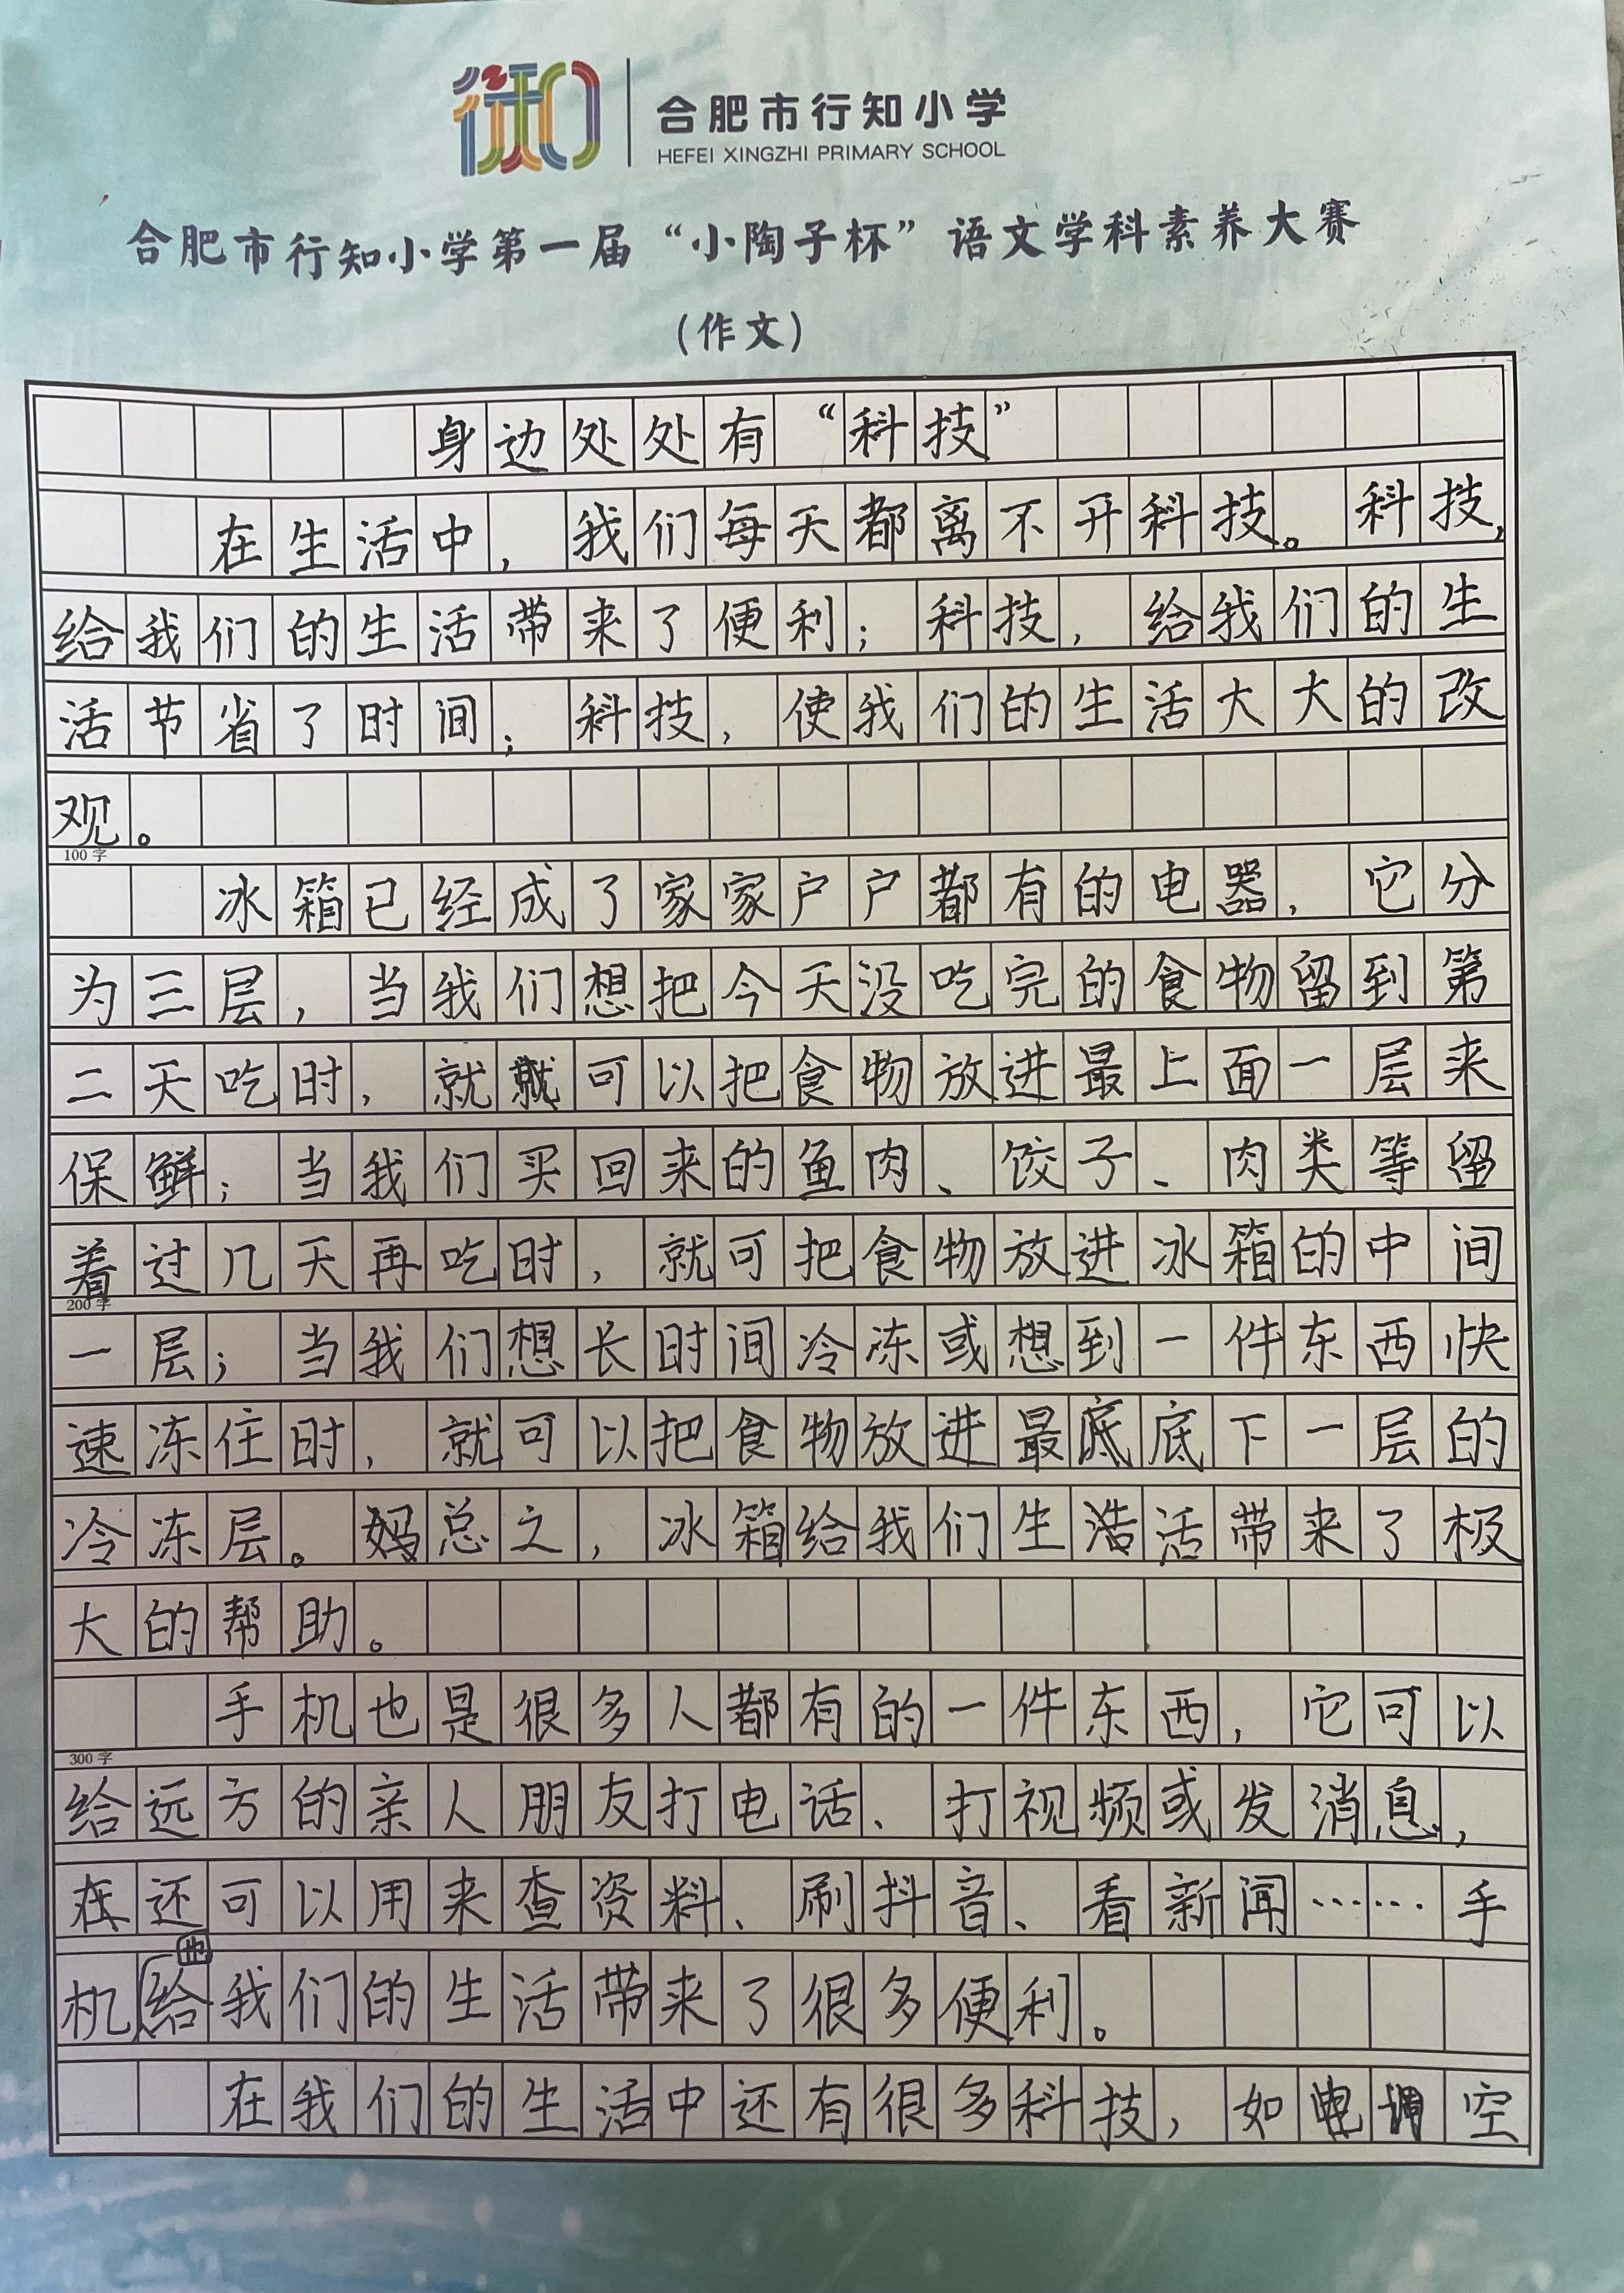 合肥市行知小学
HEFEI XINGZHI PRIMARY SCHOOL
合肥市行知小学第一届“小陶子杯”语文学科素养大赛
(作文)
身边处处有“科技”
在生活中，我们每天都离不开科技。科技，
给我们的生活带来了便利；科技，给我们的生
活节省了时间；科技，使我们的生活大大的改
观。
100字
冰箱已经成了家家户户都有的电器，它分
为三层，当我们想把今天没吃完的食物留到第
二天吃时，就可以把食物放进最上面一层来
保鲜；当我们买回来的鱼肉、饺子、肉类等留
着过几天再吃时，就可把食物放进冰箱的中间
200字
一层；当我们想长时间冷冻或想到一件东西快
速冻住时，就可以把食物放进最底底下一层的
冷冻层。总之，冰箱给我们生活带来了极
大的帮助。
手机也是很多人都有的一件东西，它可以
300字
给远方的亲人朋友打电话、打视频或发消息，
还可以用来查资料、刷抖音、看新闻……手
机也给我们的生活带来了很多便利。
在我们的生活中还有很多科技，如空